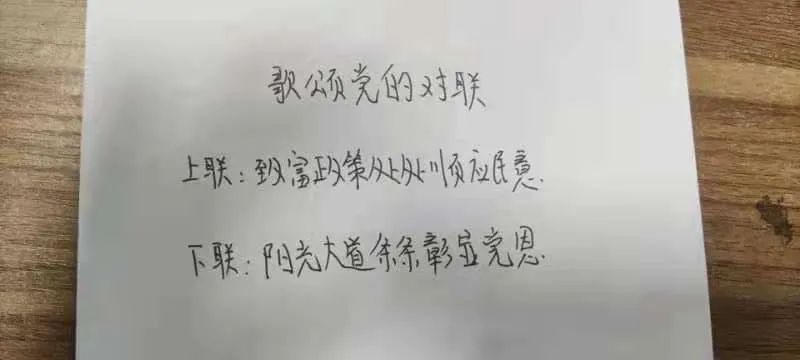 歌颂党的对联
上联：致富政策处处顺应民意.
下联：阳光大道条条彰显党恩.